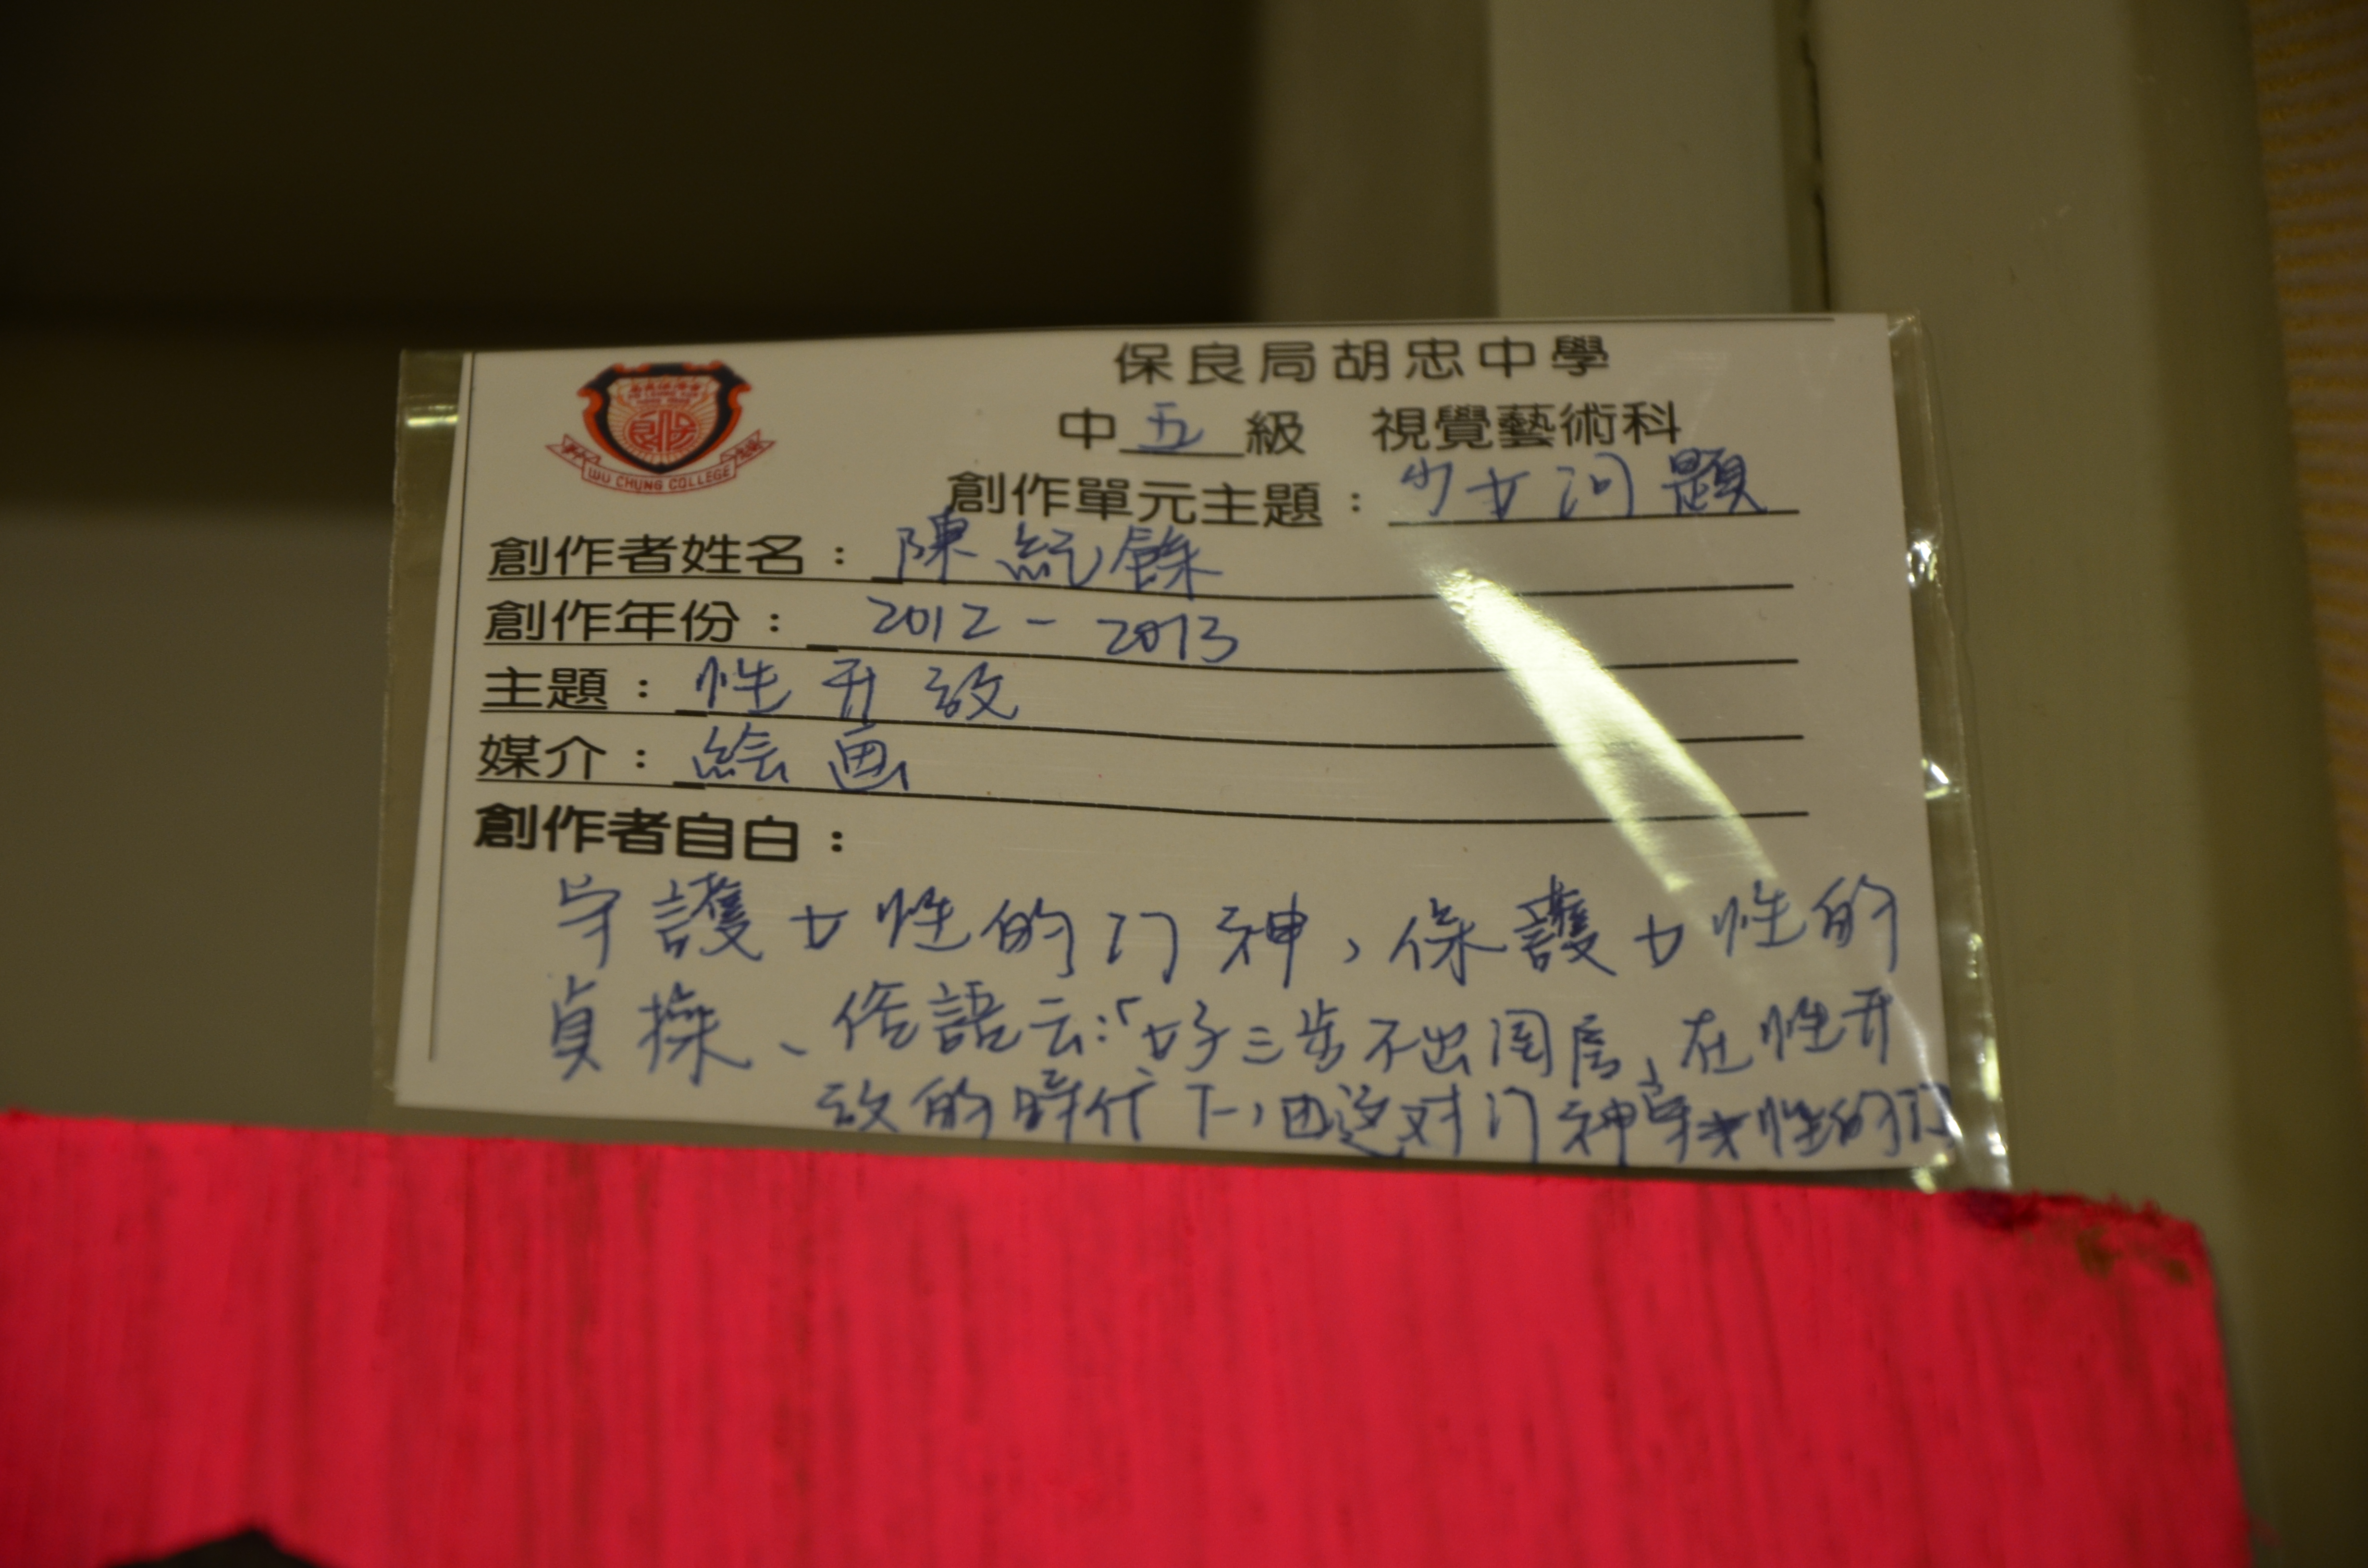 保良局胡忠中學
中五級 視覺藝術科
WU CHUNG COLLEGE
創作單元主題：少女问題
創作者姓名：陳紀餘
創作年份：2012-2013
主題：性开放
媒介：絵画
創作者自白：
守護女性的门神，保護女性的
貞操、俗語云：「女子三步不出闺房，在性开
放的時代下，